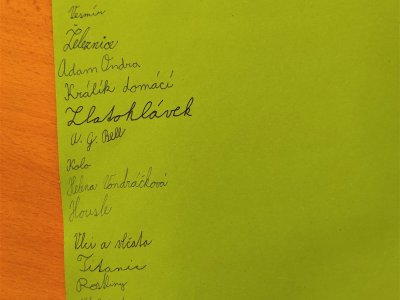 Vesmír
Železnice
Adam Ondra
Králík domácí
Zlatohlávek
A. G. Bell
Kolo
Helena Vondráčková
Housle
Vlci a vlčata
Titanic
Rostliny